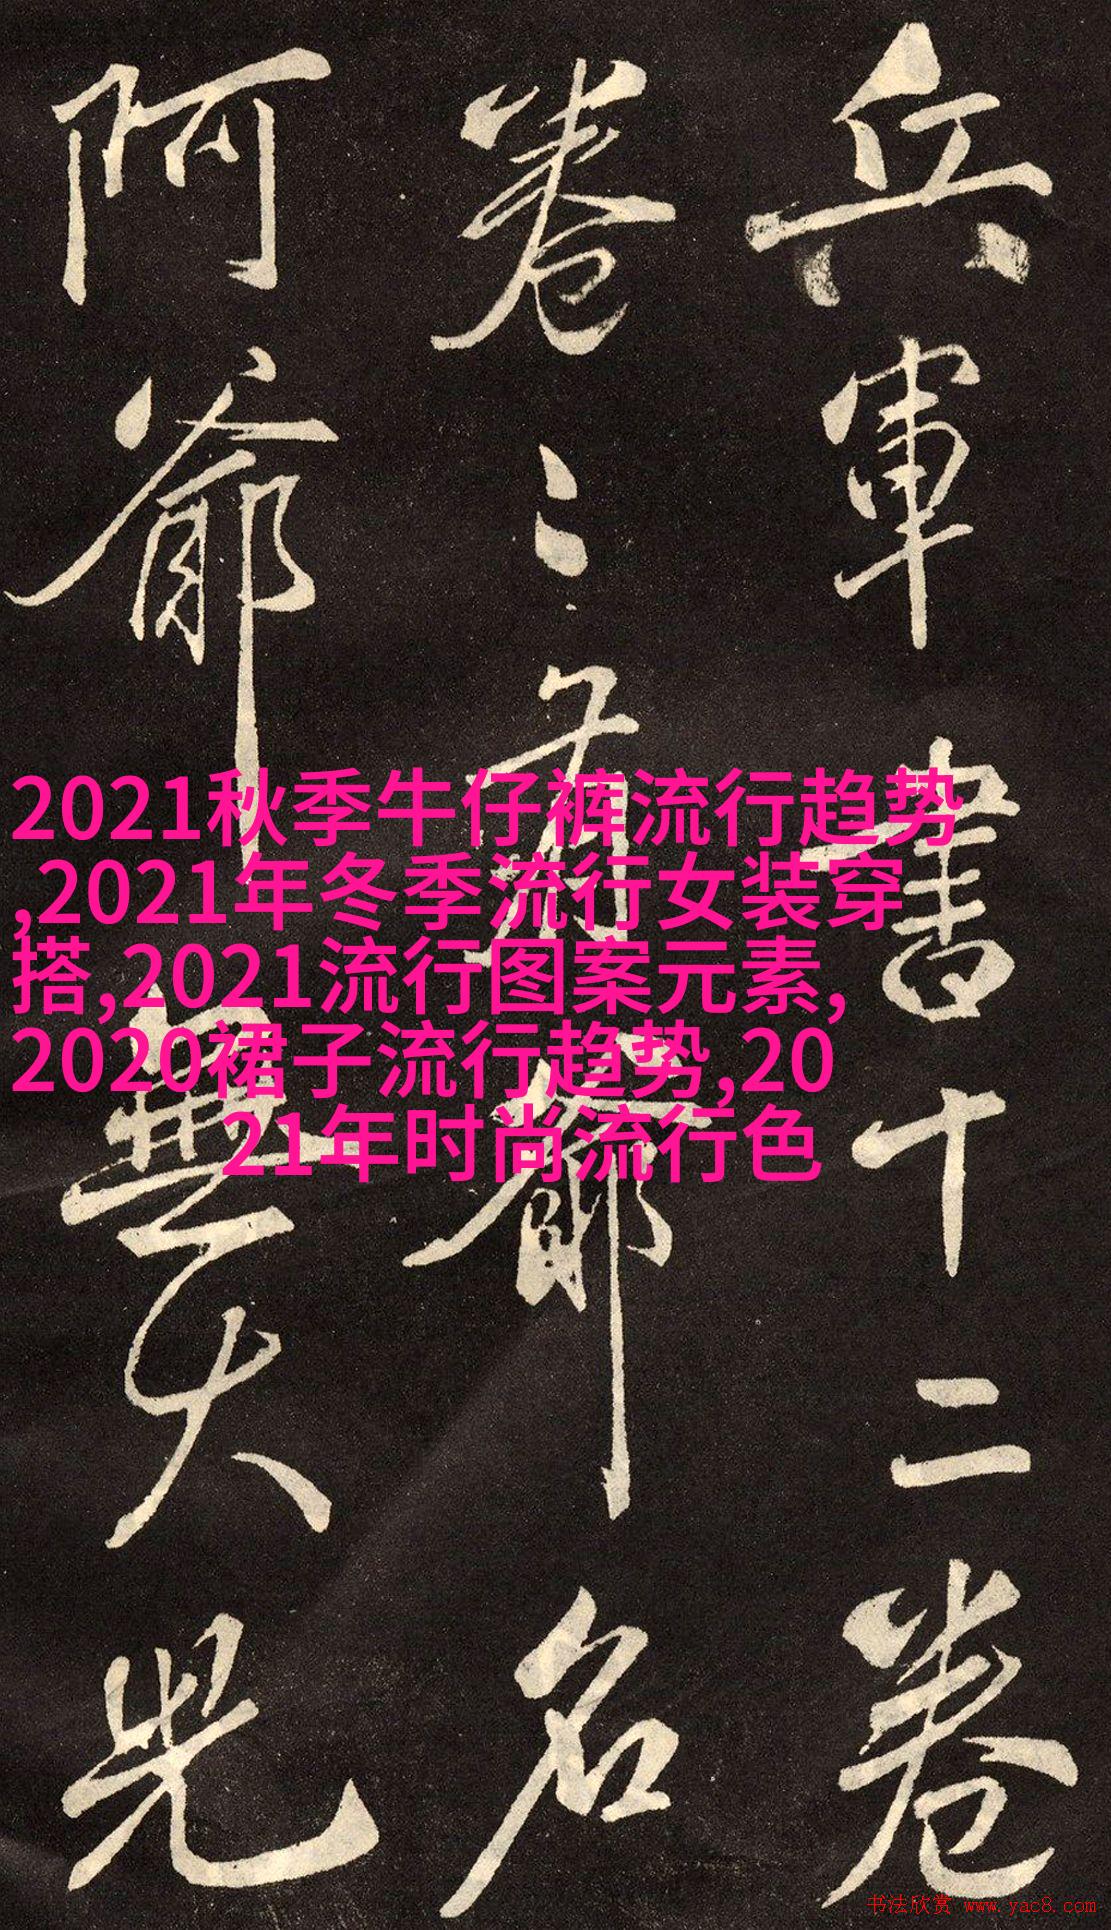 兵軍書十二卷
卷〻有爺名
阿爺無大兒
2021秋季牛仔裤流行趋势
,2021年冬季流行女装穿
搭,2021流行图案元素,
2020裙子流行趋势,20
21年时尚流行色
书法欣赏 www.yac8.com